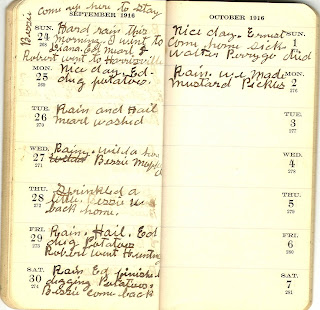 Bessie come up here to stay
SEPTEMBER 1916
SUN. 24 268
Hard rain this
morning. I went to
Diana. Ed Murl &
Robert went to
MON. 25 269
Nice day. Ed
dug potatoes.
TUE. 26 270
Rain and Hail
Murl washed
WED. 27 271
Rainy. Wilda has
Bessie
THUR. 28 272
Sprinkled a
little. Bessie
back home.
FRI. 29 273
Rain. Hail. Ed
dug Potatoes
Robert went Hunting
SAT. 30 274
Rain Ed finished
digging Potatoes.
Bessie come back
OCTOBER 1916
SUN. 1 275
Nice day. Ernest
come home sick
Walter Perrygo died
MON. 2 276
Rain. We Made
Mustard Pickles
TUE. 3 277
WED. 4 278
THUR. 5 279
FRI. 6 280
SAT. 7 281